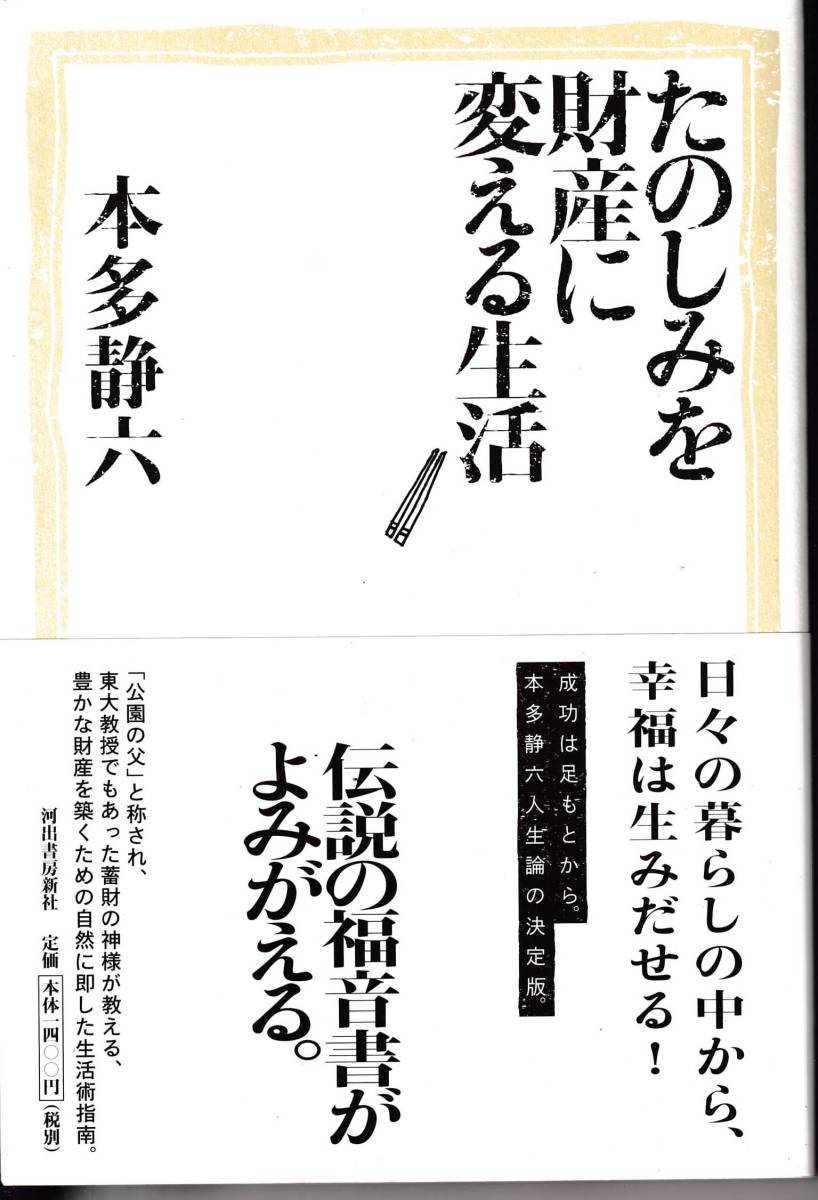 たのしみを
財産に
変える生活
本多静六
日々の暮らしの中から、
幸福は生みだせる！
成功は足もとから。
本多静六人生論の決定版。
伝説の福音書が
よみがえる。
「公園の父」と称され、
東大教授でもあった蓄財の神様が教える、
豊かな財産を築くための自然に即した生活術指南。
河出書房新社 定価 本体一四〇〇円（税別）